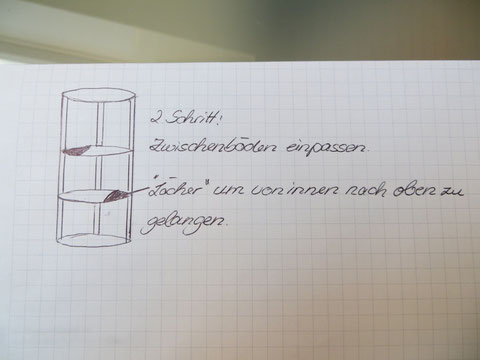 2 Schritt:
Zwischenböden einpassen.
"Löcher" um von innen nach oben zu
gelangen.